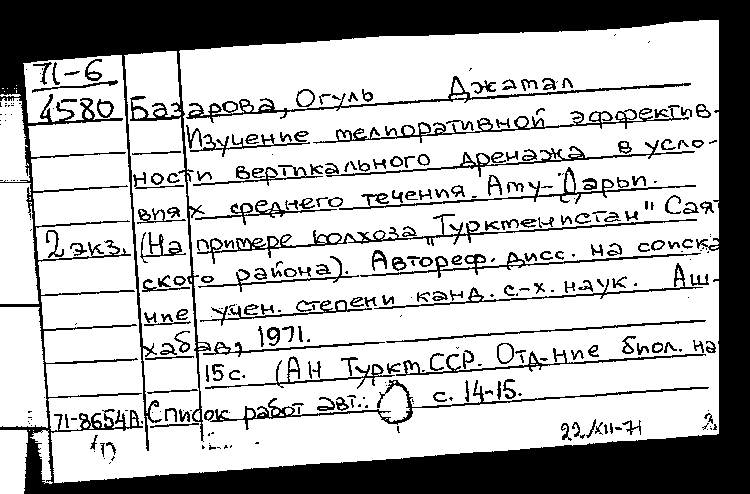 71-6
4580 Базарова, Огуль Джамал
Изучение мелиоративной эффектив-
ности вертикального дренажа в усло-
виях среднего течения Аму-Дарьи.
2 экз. (На примере колхоза "Туркменистан" Саят
ского района). Автореф. дисс. на соиска
ние учен. степени канд. с-х. наук. Аш-
хабад, 1971.
15 с. (АН Туркм.ССР. Отд-ние биол. на
71-8654А Список работ авт.: с. 14-15.
22/XII-71